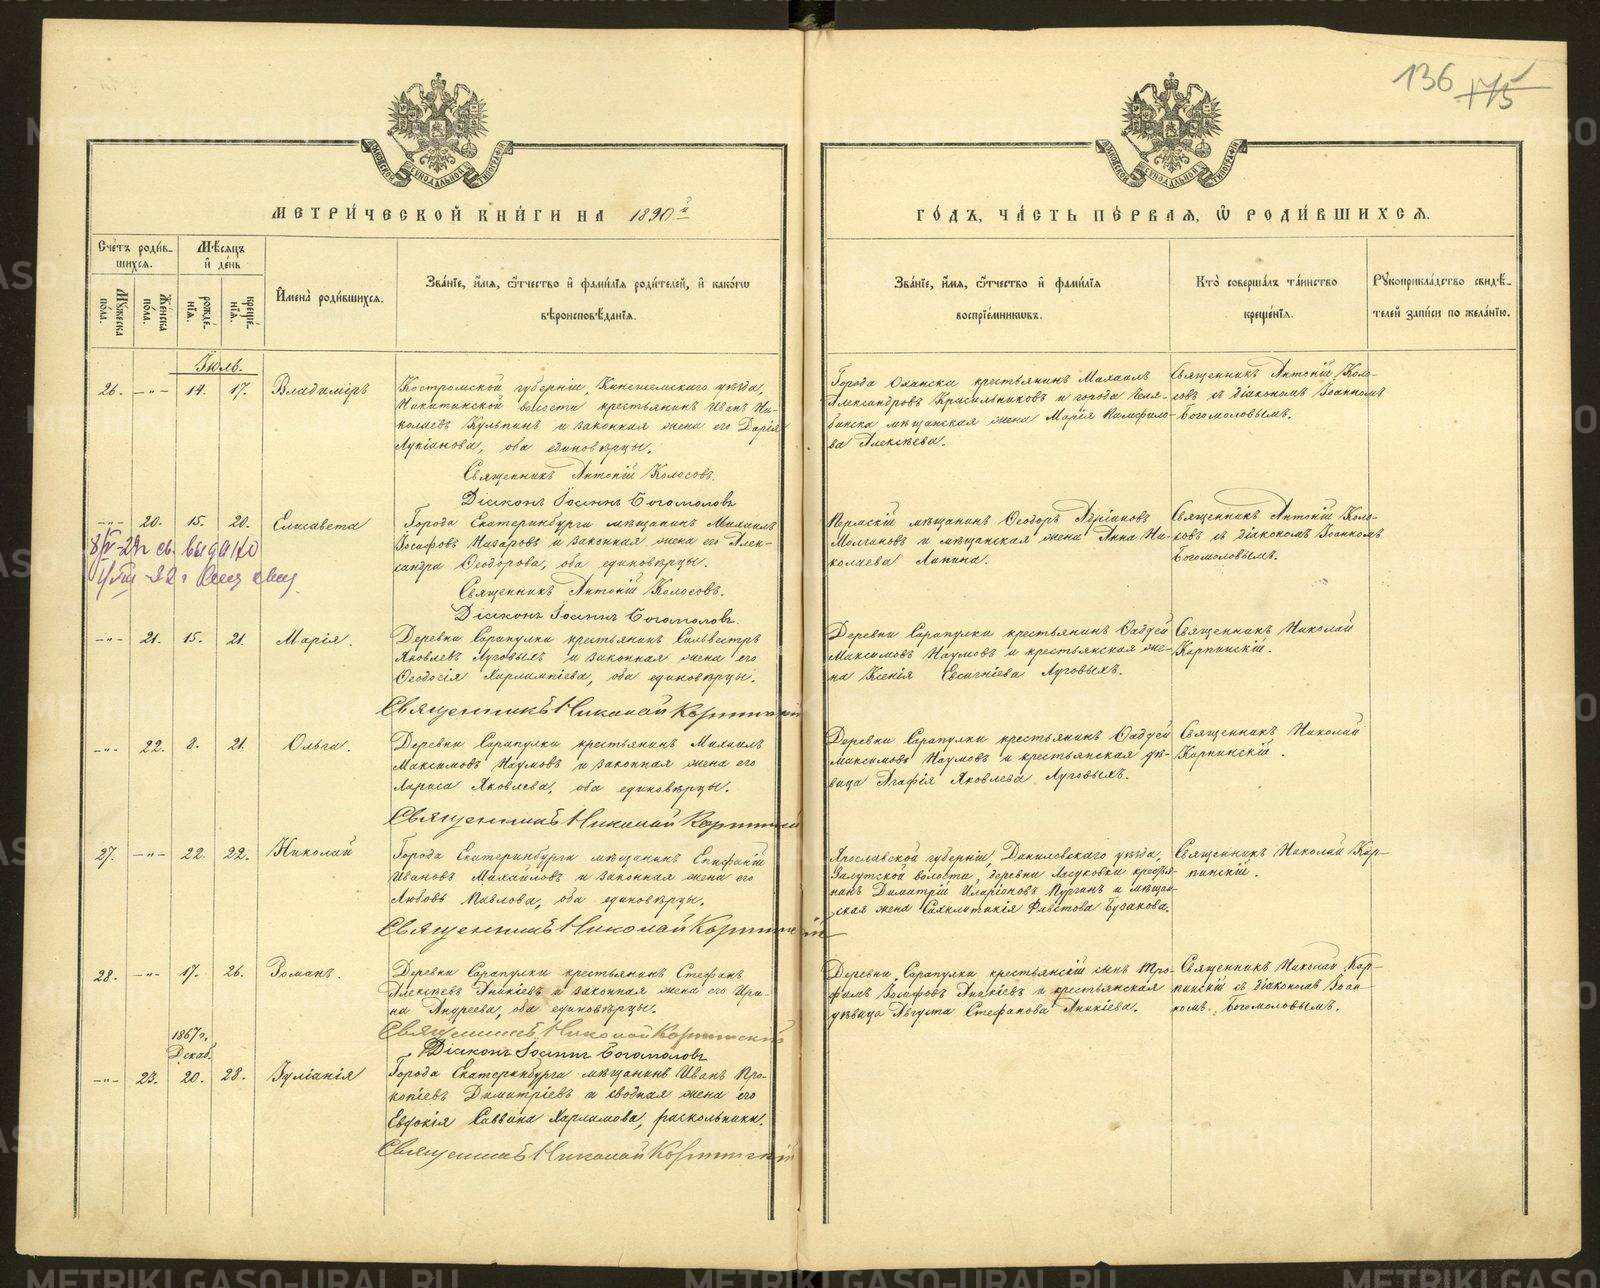 136 175
МЕТРИ́ЧЕСКОЙ КНИ́ГИ НА 1890й
ГО́ДЪ, ЧА́СТЬ ПЕ́РВАЯ, Ѿ РОДИ́ВШИХСЯ.
Счетъ роди́в-
шихся.
Мѣсяцъ
и҆ де́нь
Мꙋжеска пола.
Же́нска пола.
рожде́-
нїѧ.
креще́-
нїѧ.
И҆мена̀ роди́вшихся.
Зва́нїе, и҆́мѧ, ѻ҆́тчество и҆ фами́лїѧ роди́телей, и҆ како́гѡ
вѣроисповѣ́данїѧ.
Зва́нїе, и҆́мѧ, ѻ҆́тчество и҆ фами́лїѧ
воспрїе́мникѡвъ.
Кто̀ соверша́лъ та́инство
креще́нїѧ.
Рꙋкоприкла́дство свидѣ́-
телей за́писи по жела́нїю.
Іюль.
26. —"— 14. 17. Владиміръ
Костромской губерніи, Кинешемскаго уѣзда,
Никитинской волости крестьянинъ Иванъ Ни-
колаевъ Кульпинъ и законная жена его Дарія
Лукіанова, оба единовѣрцы.
Священникъ Антоній Колосовъ.
Діаконъ Іоаннъ Богомоловъ
Города Оханска крестьянинъ Михаилъ
Александровъ Красильниковъ и города Челя-
бинска мѣщанская жена Марія Памфило-
ва Алексѣева.
Священникъ Антоній Коло-
совъ съ діакономъ Іоанномъ
Богомоловымъ.
—"— 20. 15. 20. Елисавета
Города Екатеринбурга мѣщанинъ Михаилъ
Іосафовъ Назаровъ и законная жена его Алек-
сандра Ѳеодорова, оба единовѣрцы.
Священникъ Антоній Колосовъ.
Діаконъ Іоаннъ Богомоловъ.
Пермскій мѣщанинъ Ѳеодоръ Адріановъ
Молчановъ и мѣщанская жена Анна Ни-
колаева Лапина.
Священникъ Антоній Коло-
совъ съ діакономъ Іоанномъ
Богомоловымъ.
выдано
—"— 21. 15. 21. Марія.
Деревни Сарапулки крестьянинъ Сильвестръ
Яковлевъ Луговыхъ и законная жена его
Ѳеодосія Харлампіева, оба единовѣрцы.
Священникъ Николай Карпинскій
Деревни Сарапулки крестьянинъ Ѳаддей
Максимовъ Наумовъ и крестьянская же-
на Ксенія Евсигніева Луговыхъ.
Священникъ Николай
Карпинскій.
—"— 22. 8. 21. Ольга.
Деревни Сарапулки крестьянинъ Михаилъ
Максимовъ Наумовъ и законная жена его
Лариса Яковлева, оба единовѣрцы.
Священникъ Николай Карпинскій
Деревни Сарапулки крестьянинъ Ѳаддей
Максимовъ Наумовъ и крестьянская дѣ-
вица Агафія Яковлева Луговыхъ.
Священникъ Николай
Карпинскій.
27. —"— 22. 22. Николай
Города Екатеринбурга мѣщанинъ Епифаній
Ивановъ Михайловъ и законная жена его
Любовь Павлова, оба единовѣрцы.
Священникъ Николай Карпинскій
Ярославской губерніи, Даниловскаго уѣзда,
волости, деревни крестья-
нинъ Димитрій Иларіоновъ Пурганъ и мѣщан-
ская жена Фавстова Бузакова.
Священникъ Николай Кар-
пинскій.
28. —"— 17. 26. Романъ.
Деревни Сарапулки крестьянинъ Стефанъ
Алексѣевъ Аникіевъ и законная жена его Ири-
на Андреева, оба единовѣрцы.
Священникъ Николай Карпинскій
Діаконъ Іоаннъ Богомоловъ
Деревни Сарапулки крестьянскій сынъ Тро-
фимъ Іосафовъ Аникіевъ и крестьянская
дѣвица Августа Стефанова Аникіева.
Священникъ Николай Кар-
пинскій съ діакономъ Іоан-
номъ Богомоловымъ.
1867 г.
Декаб.
—"— 23. 20. 28. Іуліанія
Города Екатеринбурга мѣщанинъ Иванъ Про-
копіевъ Димитріевъ и сводная жена его
Евдокія Саввина Харламова, раскольники.
Священникъ Николай Карпинскій